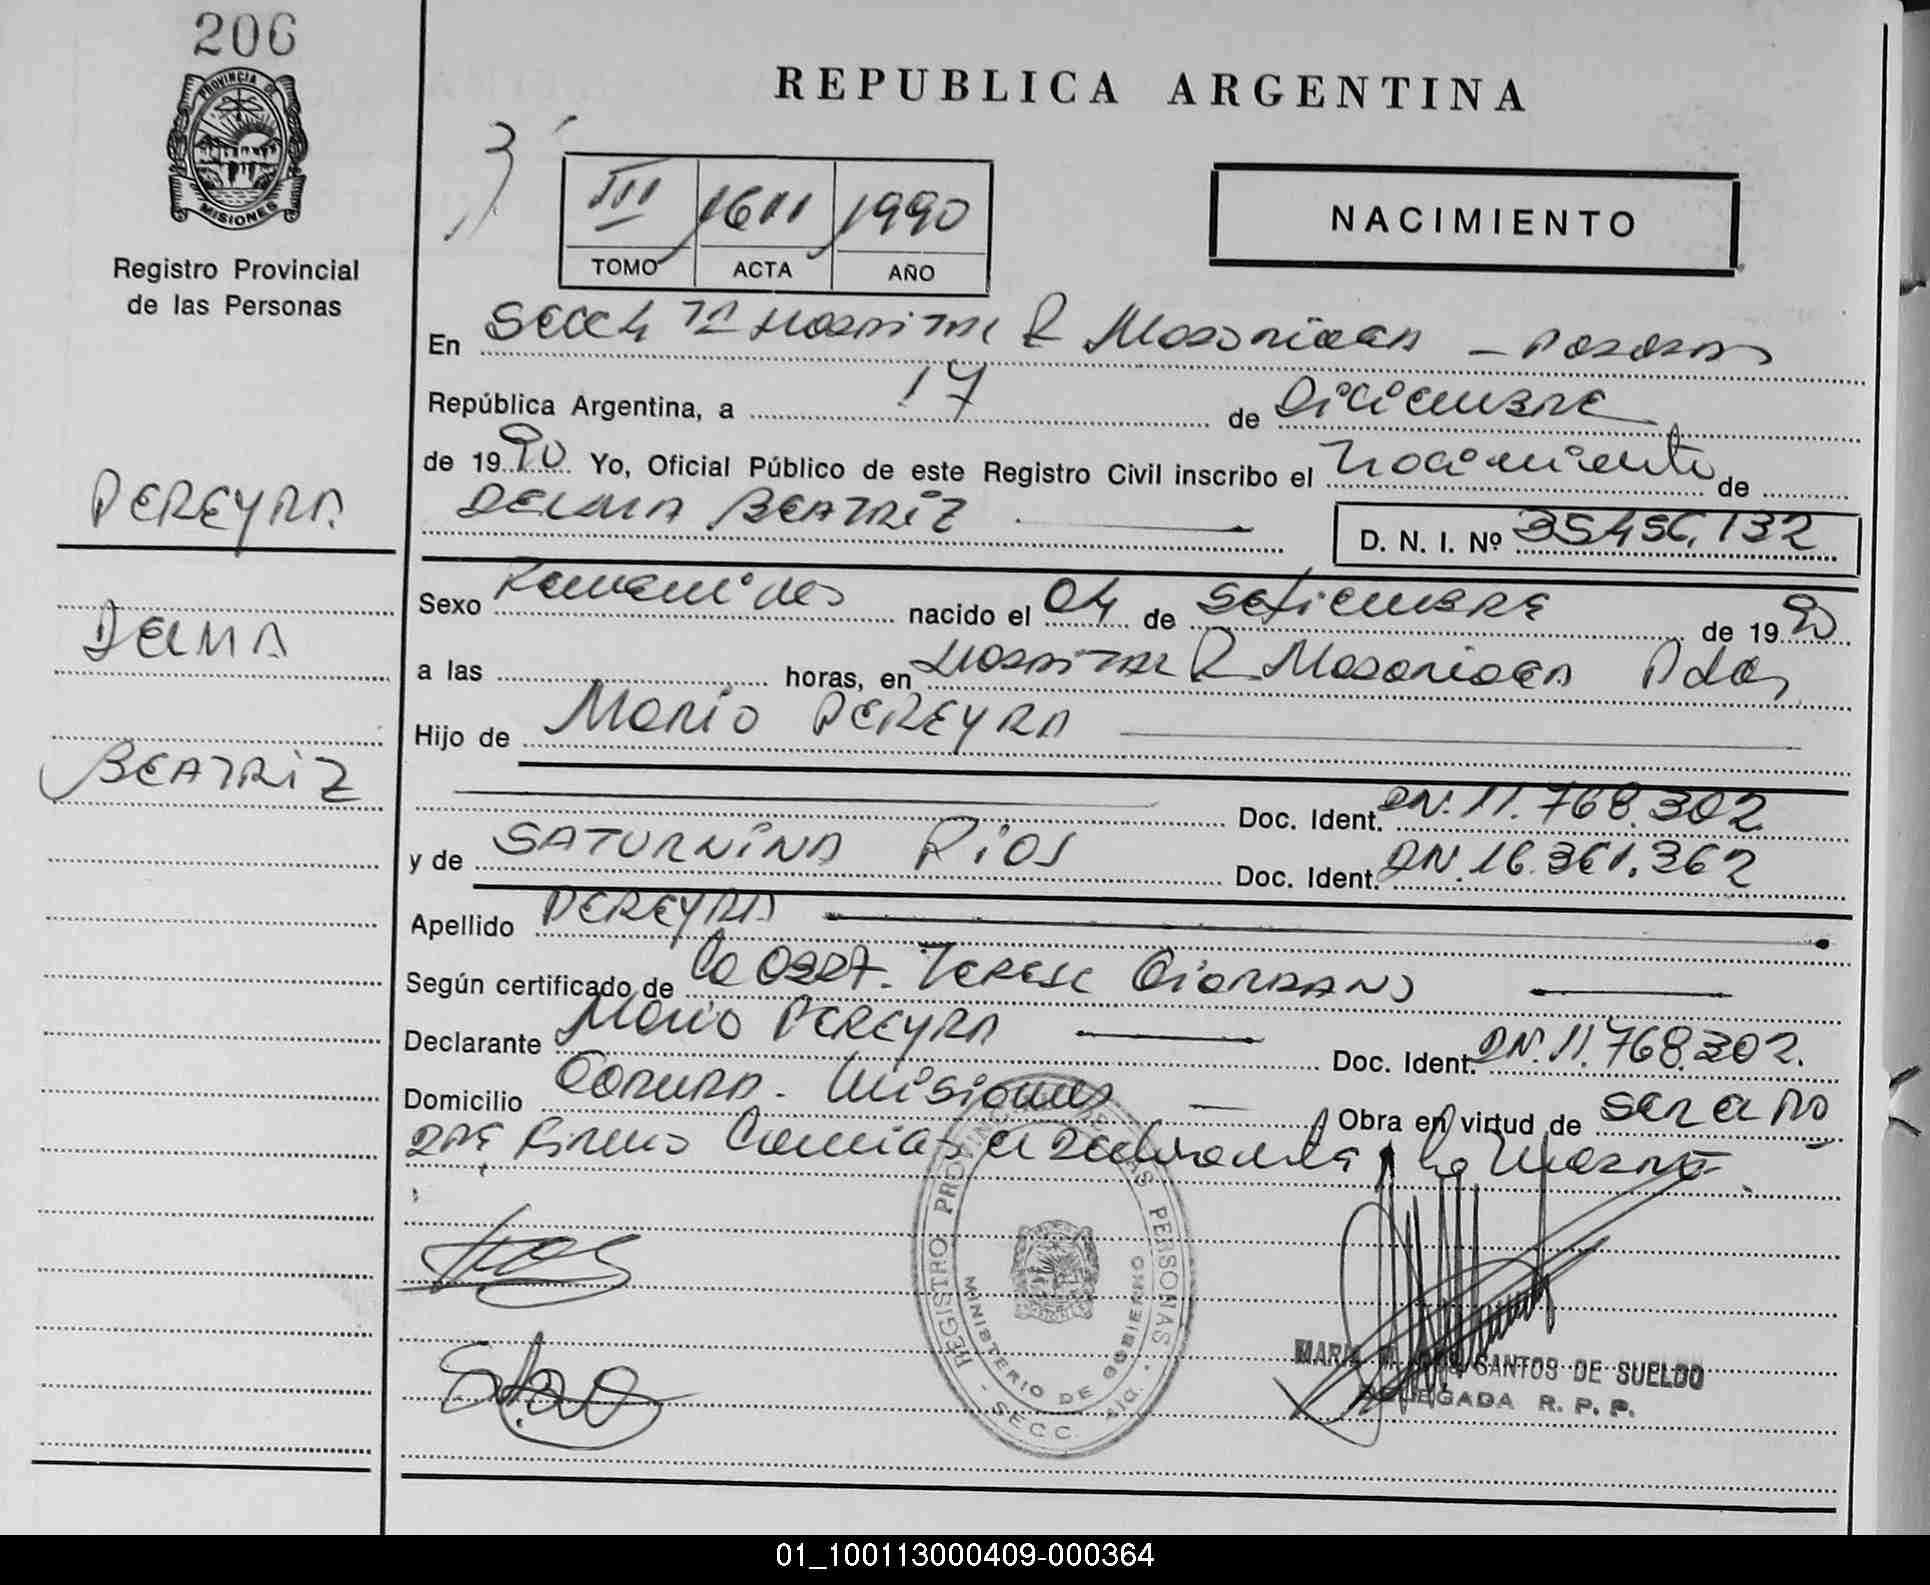 206
PROVINCIA DE
MISIONES
Registro Provincial
de las Personas
REPUBLICA ARGENTINA
3
III 1611 1990
TOMO ACTA AÑO
NACIMIENTO
En Secc 4 Hospital R Madariaga - Posadas
República Argentina, a 17 de Diciembre
de 1990 Yo, Oficial Público de este Registro Civil inscribo el Nacimiento de
DELMA BEATRIZ D. N. I. Nº 35.456.132
PEREYRA
DELMA
BEATRIZ
Sexo Femenino nacido el 04 de Setiembre de 1990
a las horas, en Hospital R Madariaga Pdas
Hijo de Mario PEREYRA
Doc. Ident. DN. 11.768.302
y de SATURNINA Rios Doc. Ident. DN. 16.361.362
Apellido PEREYRA
Según certificado de la Obst. Terese Giordano
Declarante Mario PEREYRA Doc. Ident. DN. 11.768.302.
Domicilio Misiones Obra en virtud de ser el
la Madre
REGISTRO PROVINCIAL DE LAS PERSONAS
MINISTERIO DE GOBIERNO
SECC.
SANTOS DE SUELDO
DELEGADA R. P. P.
01_100113000409-000364